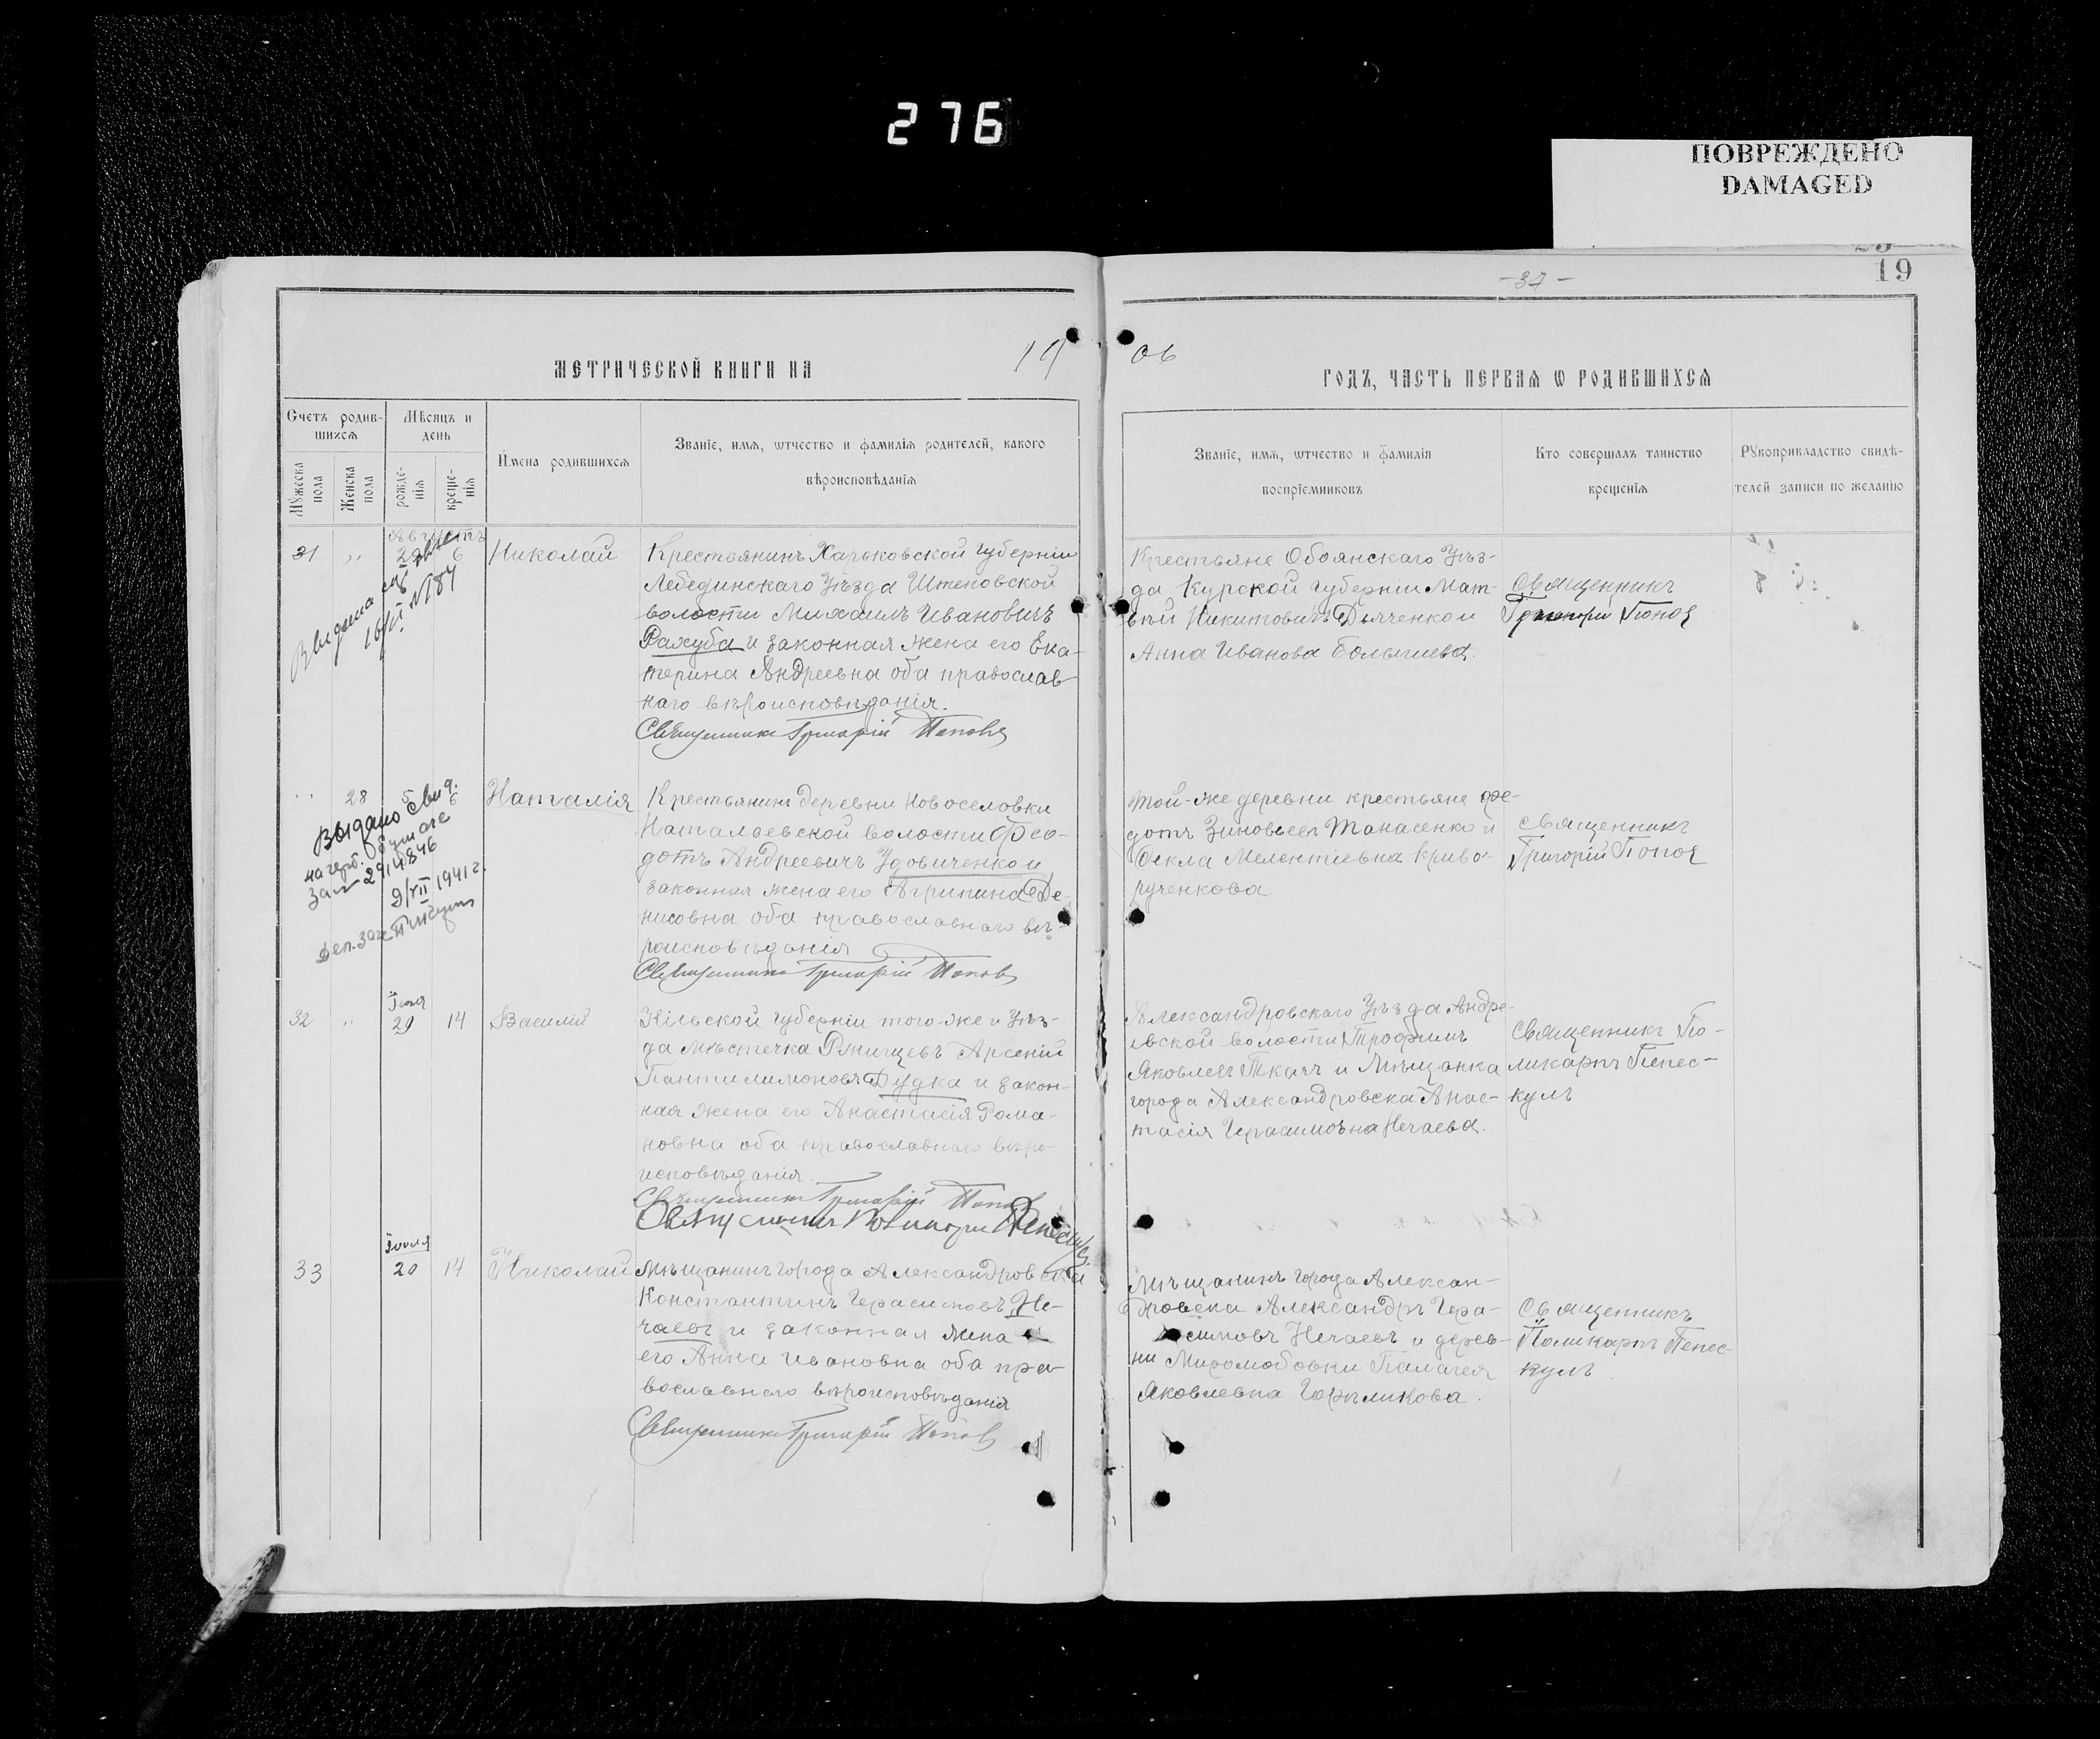 276
ПОВРЕЖДЕНО
DAMAGED
-37-
19
МЕТРИЧЕСКОЙ КНИГИ НА 19
06 ГОДЪ, ЧАСТЬ ПЕРВАЯ Ѡ РОДИВШИХСЯ
Счетъ родив-
шихся
Мѣсяцъ и
день
Мꙋжеска
пола
Женска
пола
рожде-
нія
креще-
нія
Имена родившихся
Званіе, имя, ѿтчество и фамилія родителей, какого
вѣроисповѣданія
Званіе, имя, ѿтчество и фамилія
воспріемниковъ
Кто совершалъ таинство
крещенія
Рꙋкоприкладство свидѣ-
телей записи по желанію
Августъ
31 " 29 6 Николай
Крестьянинъ Харьковской губерніи
Лебединскаго Уѣзда Штеповской
волости Михаилъ Ивановичъ
Рахуба и законная жена его Ека-
терина Андреевна оба православ-
наго вѣроисповѣданія.
Священникъ Григорій Поповъ
Крестьяне Обоянскаго Уѣз-
да Курской губерніи Мат-
вѣй Никитовичъ Дьяченко и
Анна Иванова Болычева.
Священникъ
Григорій Попов
Выдана
№184
" 28 5 6 Наталія
Крестьянинъ деревни Новоселовки
Наталоевской волости Фео-
дотъ Андреевичъ Удовиченко и
законная жена его Агрипина Де-
нисовна оба православнаго вѣ-
роисповѣданія
Священникъ Григорій Попов
той-же деревни крестьяне Фе-
дотъ Зиновьевъ Танасенко и
Фекла Мелентіевна Криво-
рученкова
священникъ
Григорій Попов
Выдано свид.
на герб. бумаге
за № 2914846
9/VII 1941 г.
Іюля
32 " 29 14 Василій
Кіевской губерніи того-же и Уѣз-
да мѣстечка Ржищевъ Арсеній
Пантилимоновъ Дудка и закон-
ная жена его Анастасія Рома-
новна оба православнаго вѣро-
исповѣданія.
Священникъ Григорій Попов
Александровскаго Уѣзда Андре-
евской волости Трофимъ
Яковлевъ Ткачъ и Мѣщанка
города Александровска Анас-
тасія Герасимовна Нечаева.
Священникъ По-
ликарпъ Пепес-
кулъ
Іюля
33 20 14 Николай
Мѣщанинъ города Александровска
Константинъ Герасимовъ Не-
чаевъ и законная жена
его Анна Ивановна оба пра-
вославнаго вѣроисповѣданія
Священникъ Григорій Попов
Мѣщанинъ города Алексан-
дровска Александръ Гера-
симовъ Нечаевъ и дерев-
ни Миролюбовки Палагея
Яковлевна
Священникъ
Поликарпъ Пепес-
кулъ